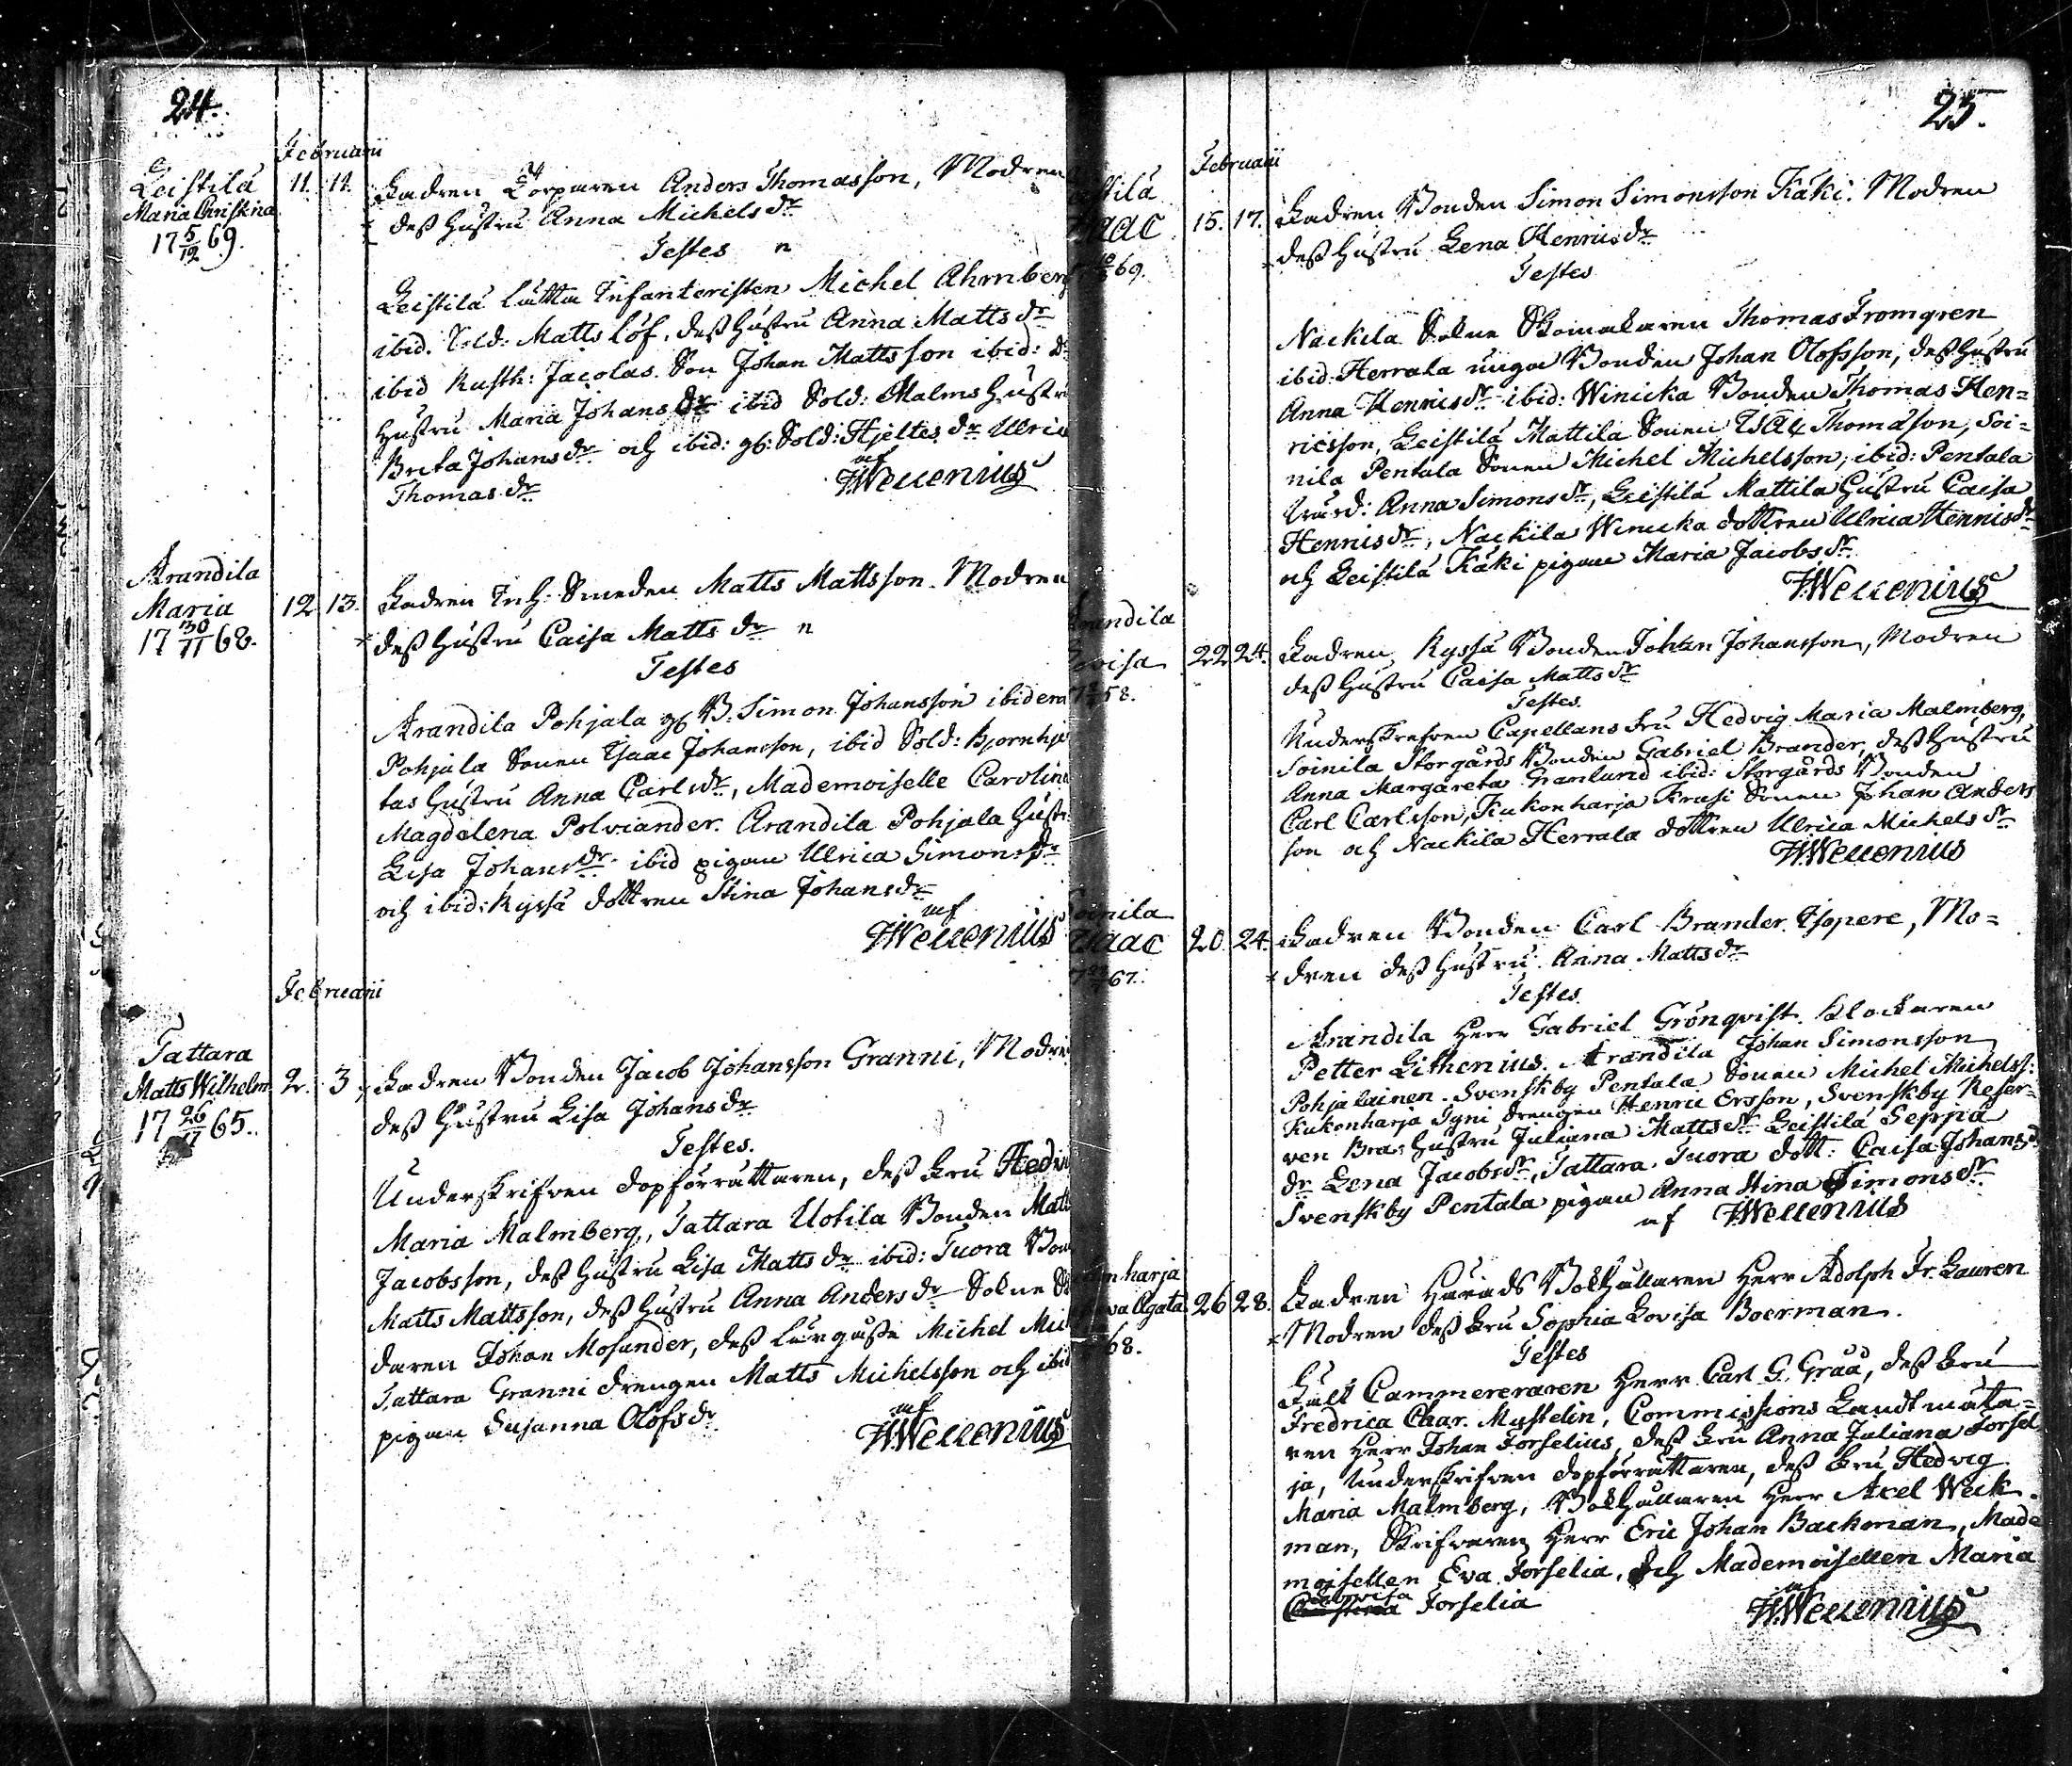 24.
Februarii
Leistilä
Maria Christina
17 5/12 69.
11. 11. Fadren Torparen Anders Thomasson, Modren
dess Hustru Anna Michels dr
Testes
Leistilä Infanteristen Michel Ahrnberg
ibid. Sold: Matts Löf, dess Hustru Anna Matts dr
ibid Rusth: Jacolas Son Johan Mattsson ibid:
Hustru Maria Johans dr ibid Sold: Malms Hustru
Breta Johans dr och ibid: gl: Sold: Hjeltes dr Ulrica
Thomas dr
HWellenius
Arandila
Maria
17 30/11 68.
12 13. Fadren Inh: Smeden Matts Mattsson. Modren
dess Hustru Caisa Matts dr
Testes
Arandila Pohjala gl B. Simon Johansson ibidem
Pohjala Sonen Isaac Johansson, ibid Sold: Bjornhje
tas Hustru Anna Carls dr, Mademoiselle Carolina
Magdalena Polviander. Arandila Pohjala Hustr
Lisa Johans dr ibid pigan Ulrica Simons dr
och ibid: Kyssä dottren Stina Johans dr
HWellenius
Februarii
Tattara
Matts Wilhelm
17 26/11 65.
2. 3 Fadren Bonden Jacob Johansson Granni, Modre
dess Hustru Lisa Johans dr
Testes.
Underskrifven dopförrättaren, dess Fru Hedvi
Maria Malmberg, Tattara Uotila Bonden Matt
Jacobsson, dess Hustru Lisa Matts dr ibid: Tuora Bon
Matts Mattsson, dess Hustru Anna Anders dr Sokne
daren Johan Mosander, dess Michel Mic
Tattara Granni drengen Matts Michelsson och ibid
pigan Susanna Olofs dr
HWellenius
25.
Februarii
stilä
saac
69.
15. 17. Fadren Bonden Simon Simonsson Käki. Modren
dess Hustru Lena Henrics dr
Testes
Nackila Sokne Skomakaren Thomas Fromgren
ibid: Herrala unga Bonden Johan Olofsson, dess Hustru
Anna Henrics dr ibid: Winicka Bonden Thomas Hen=
ricsson, Leistilä Mattila Sonen Isac Thomasson, Soi=
nila Pentala Sonen Michel Michelsson, ibid: Pentala
Anna Simons dr, Leistilä Mattila Hustru Caisa
Henrics dr, Nackila Winicka dottren Ulrica Henrics dr
och Leistilä Käki pigan Maria Jacobs dr
HWellenius
randila
ovisa
58.
22 24. Fadren, Kyssä Bonden Johan Johansson, Modren
dess Hustru Caisa Matts dr
Testes.
Underskrefven Capellans Fru Hedvig Maria Malmberg,
Soinila Storgårds Bonden Gabriel Brander, dess Hustru
Anna Margareta Granlund ibid: Storgårds Bonden
Carl Carlsson, Kukonharja Krusi Sonen Johan Anders
son och Nackila Herrala dottren Ulrica Michels dr
HWellenius
oinila
Isaac
67.
20. 24. Fadren Bonden Carl Brander Isopere, Mo=
dren dess Hustru Anna Matts dr
Testes.
Arandila Herr Gabriel Grönqvist. Klockaren
Petter Lithenius. Arandila Johan Simonsson
Pohjalainen. Svenskby Pentala Sonen Michel Michelss:
Kukonharja Sgni drengen Henric Ersson, Svenskby Reser=
ven Bras Hustru Juliana Matts dr Leistilä Seppia
dr Lena Jacobs dr, Tattara Tuora dott: Caisa Johans d
Svenskby Pentala pigan Anna Stina Simons dr
HWellenius
konharja
va Agata
68.
26 28. Fadren Härads Bokhållaren Herr Adolph Fr. Lauren
Modren dess Fru Sophia Lovisa Boerman.
Testes
Fält Cammereraren Herr Carl G. Gråå, dess Fru
Fredrica Char. Mystelin, Commissions Landtmäta=
ren Herr Johan Forselius, dess Fru Anna Juliana Forsel
ja, Underskrifven dopförrättaren, dess Fru Hedvig
Maria Malmberg, Bokhållaren Herr Axel Weck
man, Skrifvaren Herr Eric Johan Backman, Made
moisellen Eva Forselia, och Mademoisellen Maria
Lovisa Forselia
HWellenius